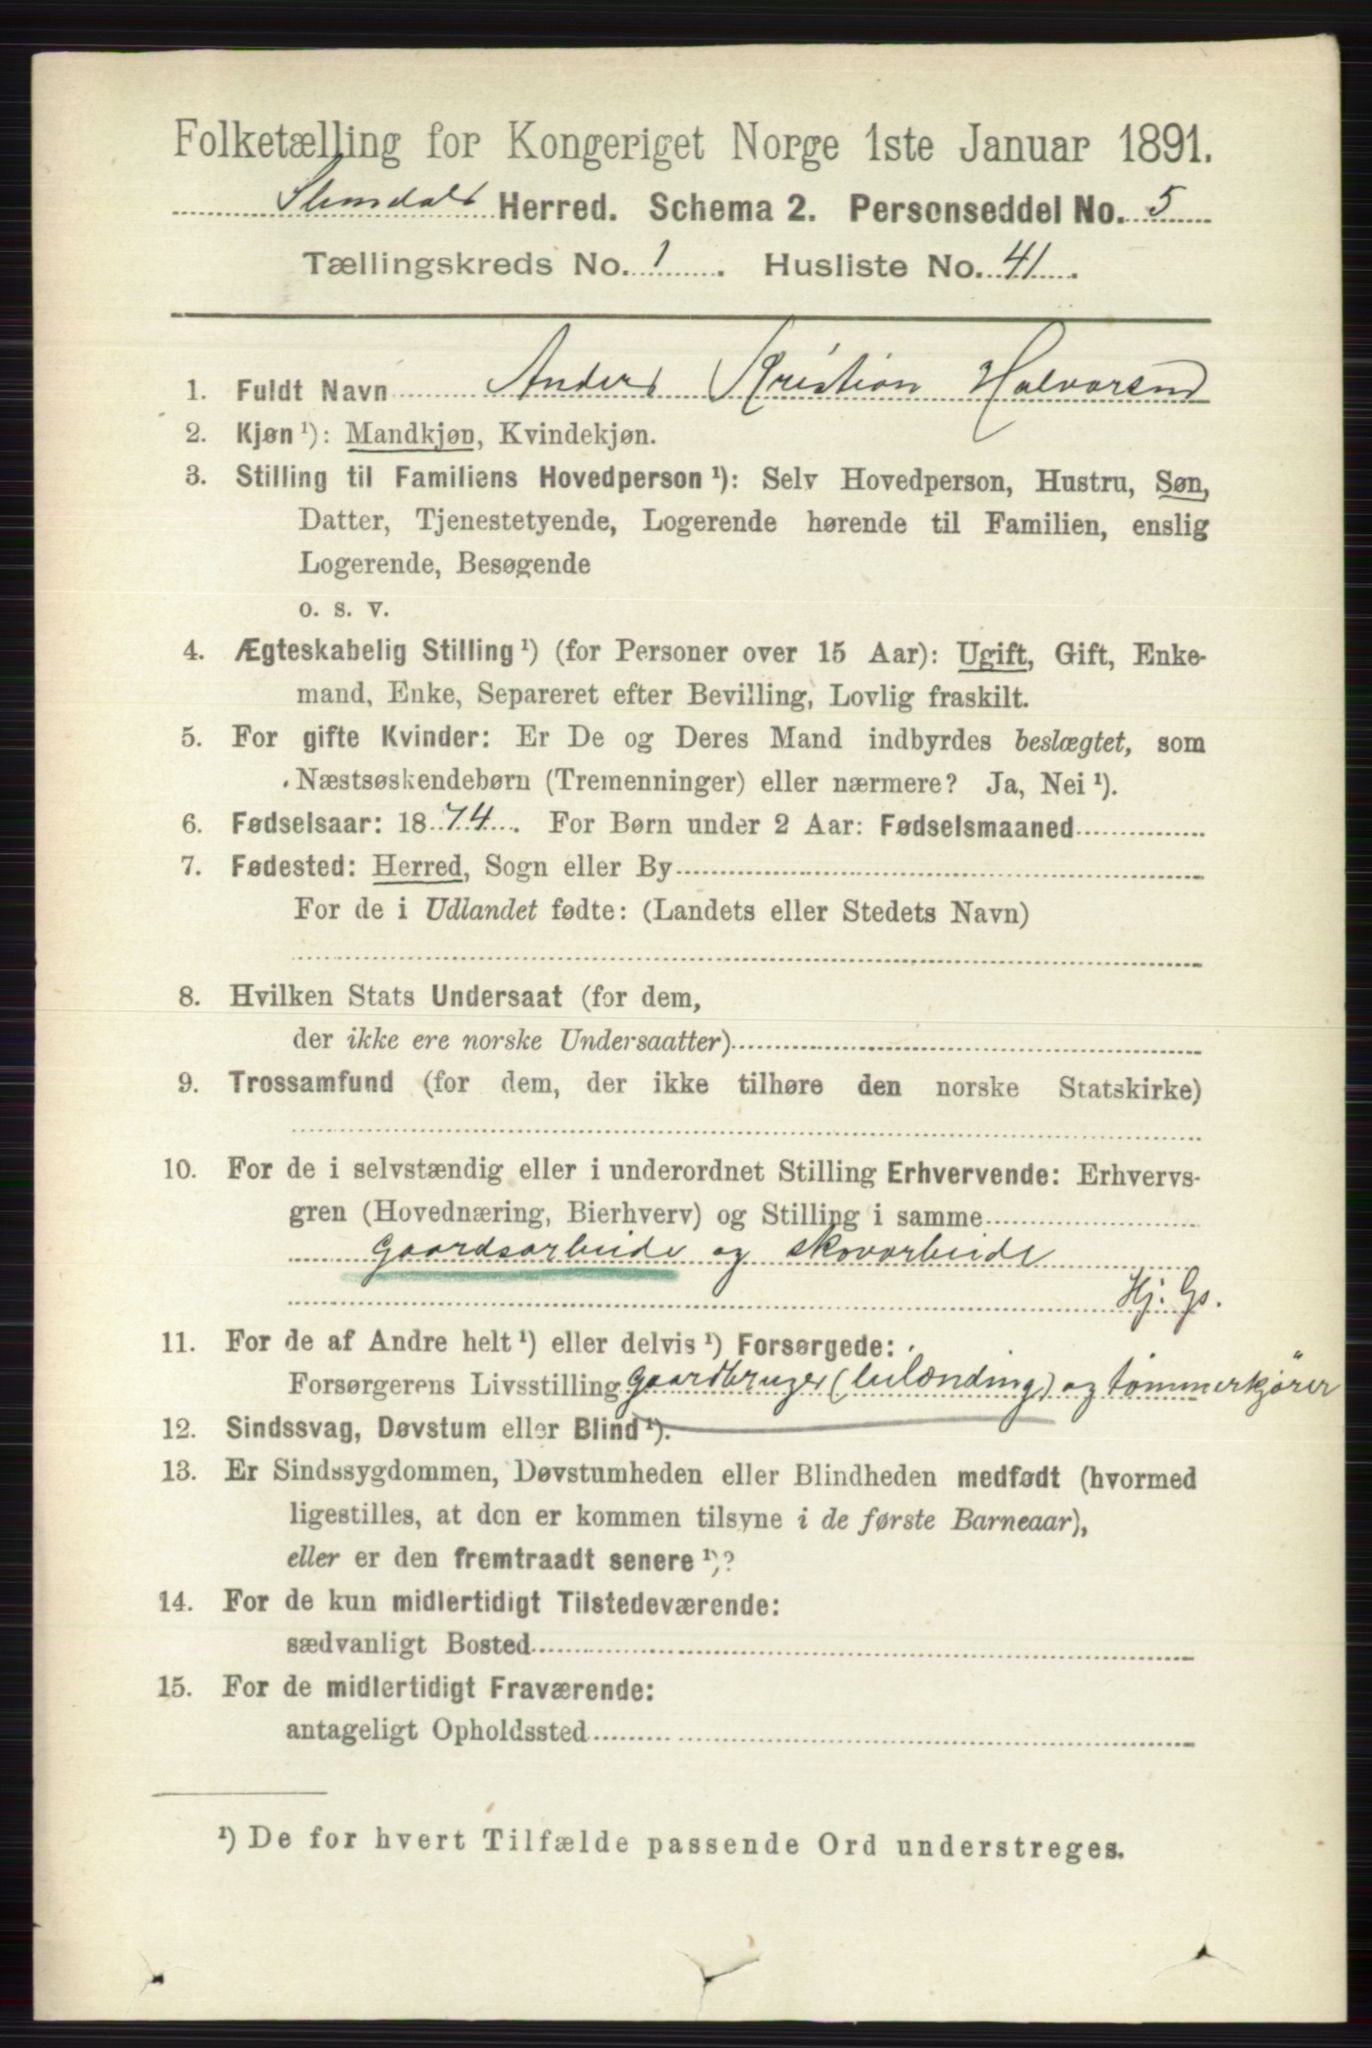 Folketælling for Kongeriget Norge 1ste Januar 1891.
Slemdals Herred. Schema 2. Personseddel No. 5
Tællingskreds No. 1. Husliste No. 41.
1. Fuldt Navn Anders Kristian Halvorsen
2. Kjøn ¹): Mandkjøn, Kvindekjøn.
3. Stilling til Familiens Hovedperson ¹): Selv Hovedperson, Hustru, Søn,
Datter, Tjenestetyende, Logerende hørende til Familien, enslig
Logerende, Besøgende
o. s. v.
4. Ægteskabelig Stilling ¹) (for Personer over 15 Aar): Ugift, Gift, Enke-
mand, Enke, Separeret efter Bevilling, Lovlig fraskilt.
5. For gifte Kvinder: Er De og Deres Mand indbyrdes beslægtet, som
Næstsøskendebørn (Tremenninger) eller nærmere? Ja, Nei ¹).
6. Fødselsaar: 1874. For Børn under 2 Aar: Fødselsmaaned
7. Fødested: Herred, Sogn eller By
For de i Udlandet fødte: (Landets eller Stedets Navn)
8. Hvilken Stats Undersaat (for dem,
der ikke ere norske Undersaatter)
9. Trossamfund (for dem, der ikke tilhøre den norske Statskirke)
10. For de i selvstændig eller i underordnet Stilling Erhvervende: Erhvervs-
gren (Hovednæring, Bierhverv) og Stilling i samme
gaardsarbeide og skovarbeide
Hj. Gs.
11. For de af Andre helt ¹) eller delvis ¹) Forsørgede:
Forsørgerens Livsstilling gaardbruger (leilænding) og tømmerkjører
12. Sindssvag, Døvstum eller Blind ¹).
13. Er Sindssygdommen, Døvstumheden eller Blindheden medfødt (hvormed
ligestilles, at den er kommen tilsyne i de første Barneaar),
eller er den fremtraadt senere ¹)?
14. For de kun midlertidigt Tilstedeværende:
sædvanligt Bosted
15. For de midlertidigt Fraværende:
antageligt Opholdssted
¹) De for hvert Tilfælde passende Ord understreges.